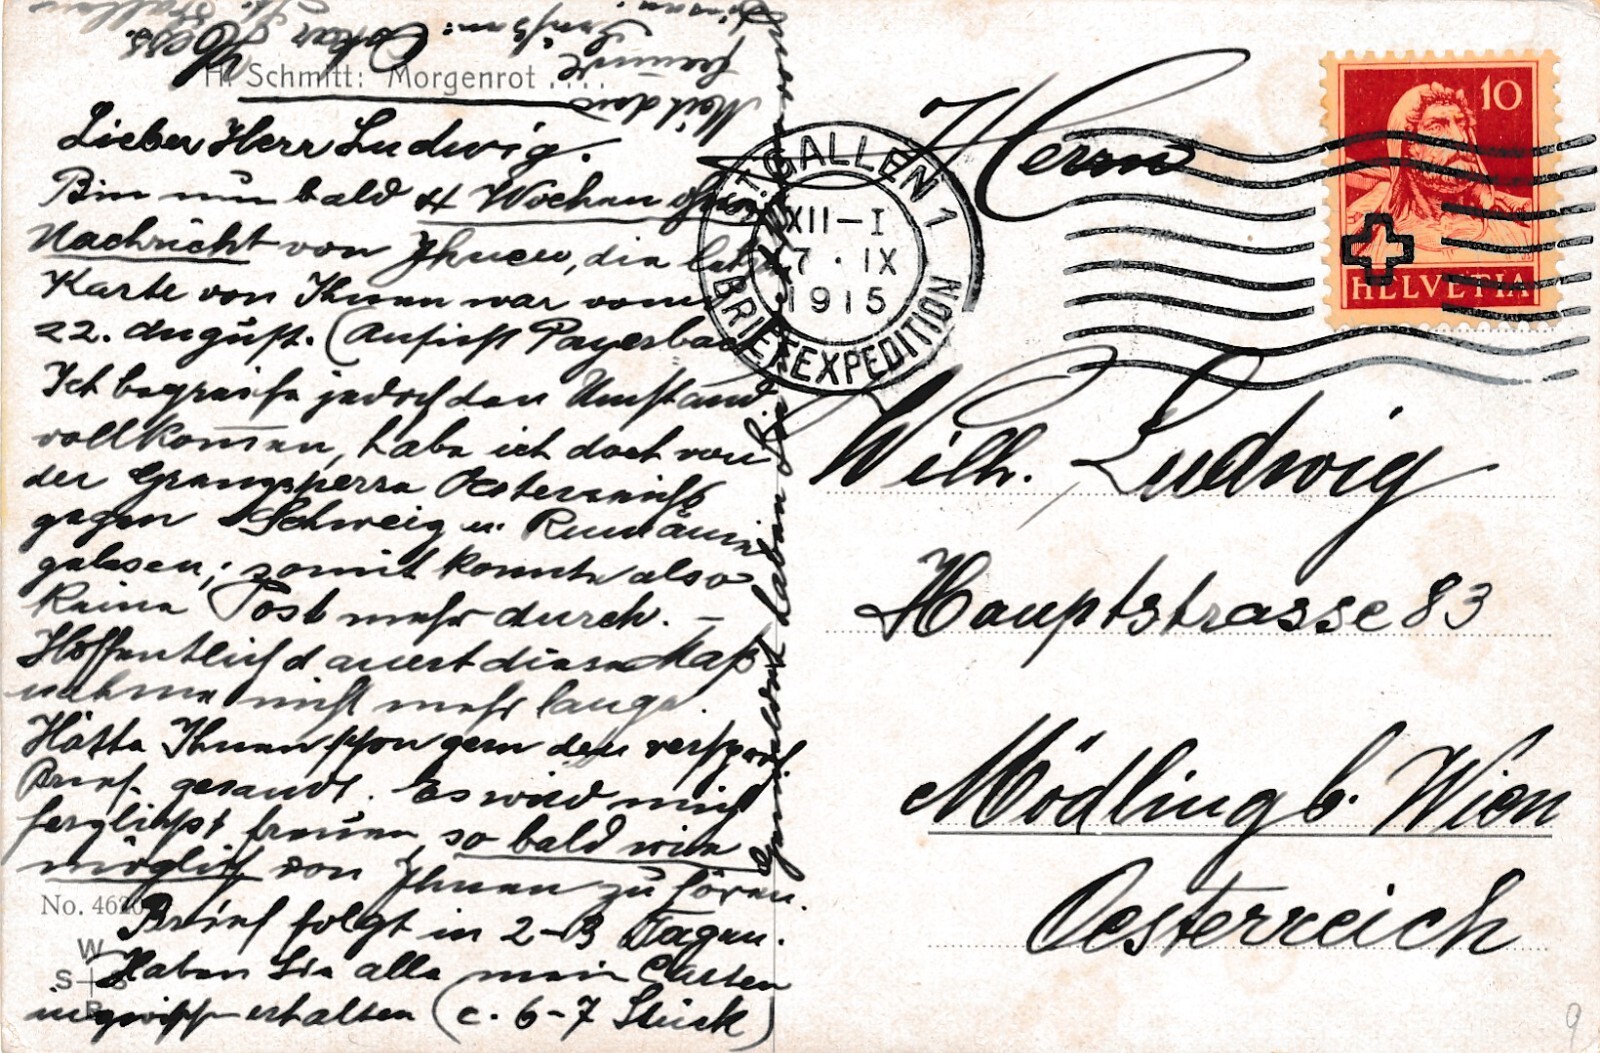 H. Schmitt: Morgenrot ....
Lieber Herr Ludwig.
Bin nun bald 4 Wochen ohne
Nachricht von Ihnen, die letzte
Karte von Ihnen war vom
22. August. (Ansicht Payerbach
Ich begreife jedoch den Umstand
vollkommen, habe ich doch von
der Grenzsperre Oesterreichs
gegen Schweiz u. Rumänien
gelesen; somit konnte also
keine Post mehr durch. –
Hoffentlich dauert diese Maß
nahme nicht mehr lange.
Hätte Ihnen schon gern den verspr.
Brief gesandt. Es wird mich
herzlichst freuen, so bald wie
möglich von Ihnen zu hören.
Brief folgt in 2-3 Tagen.
Haben Sie alle mein Carten
erhalten (c. 6-7 Stück)
Oskar Hess
No. 462
W
S
B
ST. GALLEN 1
XII–I
7 · IX
1915
BRIEFEXPEDITION
10
HELVETIA
Herrn
Wilh. Ludwig
Hauptstrasse 83
Mödling b. Wien
Oesterreich
9